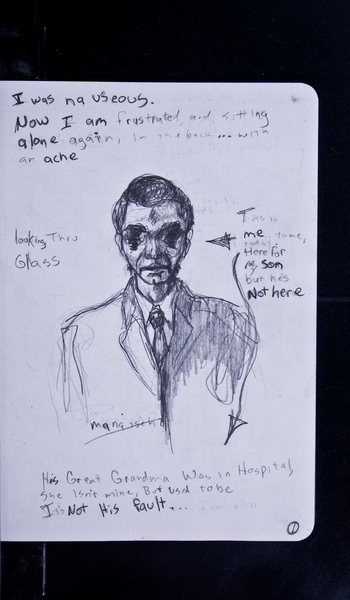 I was nauseous.
Now I am frustrated, and sitting
alone again, in the back... with
an ache
looking Thru
Glass
This is
me
today,
Here for
my son
but he's
Not here
His Great Grandma Was in Hospital,
She Isn't mine, But used to be
It's Not His Fault...
1